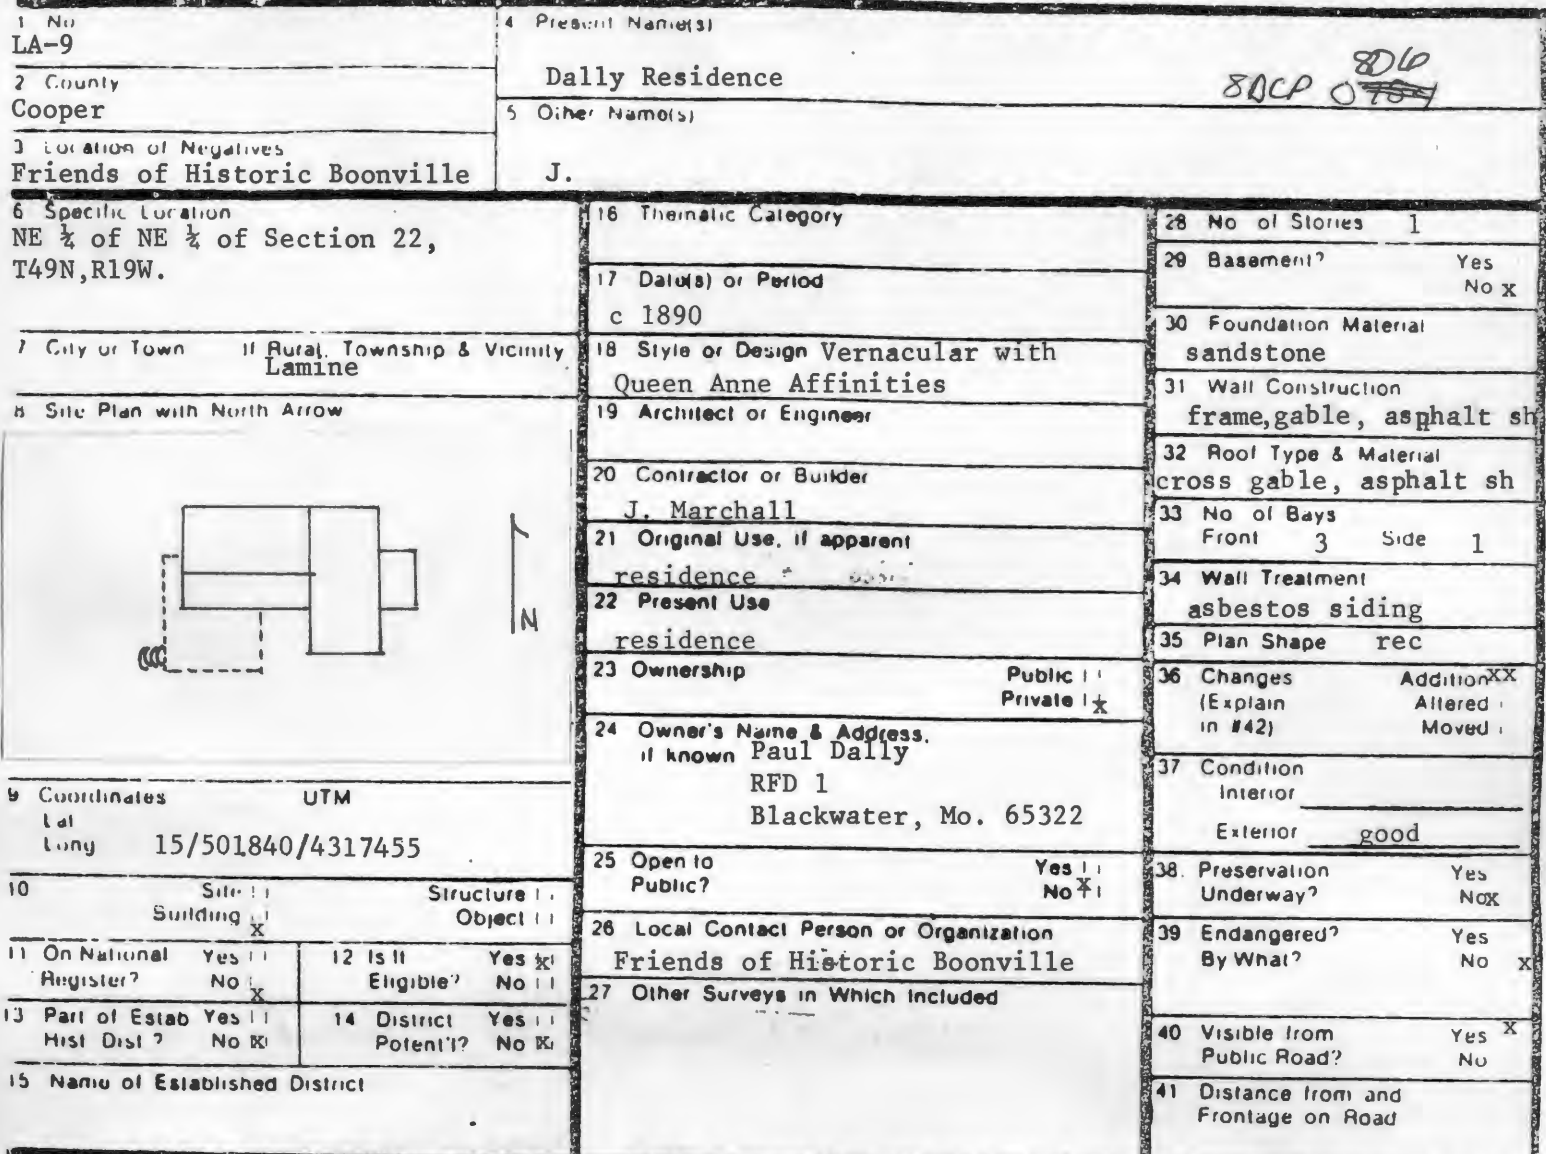 1 No
LA-9
2 County
Cooper
3 Location of Negatives
Friends of Historic Boonville
4 Present Name(s)
Dally Residence
8DCP
5 Other Name(s)
J.
6 Specific Location
NE ¼ of NE ¼ of Section 22,
T49N,R19W.
7 City or Town If Rural, Township & Vicinity
Lamine
8 Site Plan with North Arrow
N
9 Coordinates UTM
Lat
Long 15/501840/4317455
10 Site Structure
Building x Object
11 On National Register? Yes No x
12 Is It Eligible? Yes x No
13 Part of Estab Hist Dist? Yes No x
14 District Potent'l? Yes No x
15 Name of Established District
16 Thematic Category
17 Date(s) or Period
c 1890
18 Style or Design Vernacular with
Queen Anne Affinities
19 Architect or Engineer
20 Contractor or Builder
J. Marchall
21 Original Use, if apparent
residence
22 Present Use
residence
23 Ownership Public
Private x
24 Owner's Name & Address,
if known Paul Dally
RFD 1
Blackwater, Mo. 65322
25 Open to Yes
Public? No x
26 Local Contact Person or Organization
Friends of Historic Boonville
27 Other Surveys in Which Included
28 No of Stories 1
29 Basement? Yes
No x
30 Foundation Material
sandstone
31 Wall Construction
frame,gable, asphalt sh
32 Roof Type & Material
cross gable, asphalt sh
33 No of Bays
Front 3 Side 1
34 Wall Treatment
asbestos siding
35 Plan Shape rec
36 Changes Addition xx
(Explain Altered
in #42) Moved
37 Condition
Interior
Exterior good
38. Preservation Yes
Underway? No x
39 Endangered? Yes
By What? No x
40 Visible from Yes x
Public Road? No
41 Distance from and
Frontage on Road